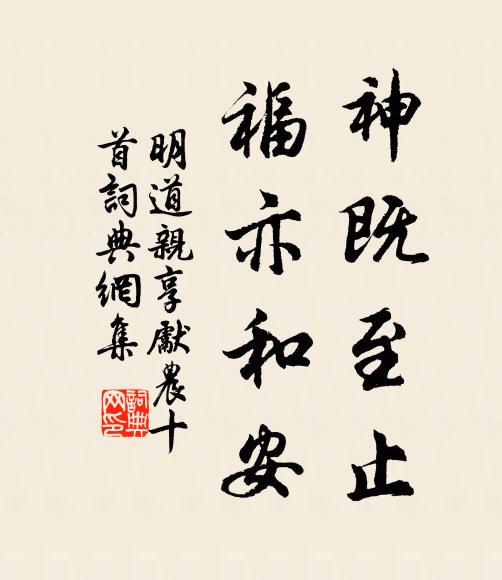 神既至止
福亦和安
明道親享獻農十
首詞典網集
詞典网印